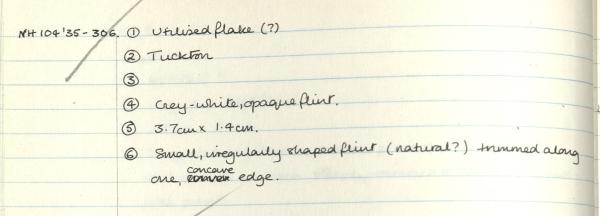 NH 104'35-306. ① Utilised flake (?)
② Tuckton
③
④ Grey-white, opaque flint.
⑤ 3.7cm x 1.4cm.
⑥ Small, irregularly shaped flint (natural?) trimmed along
one, concave edge.